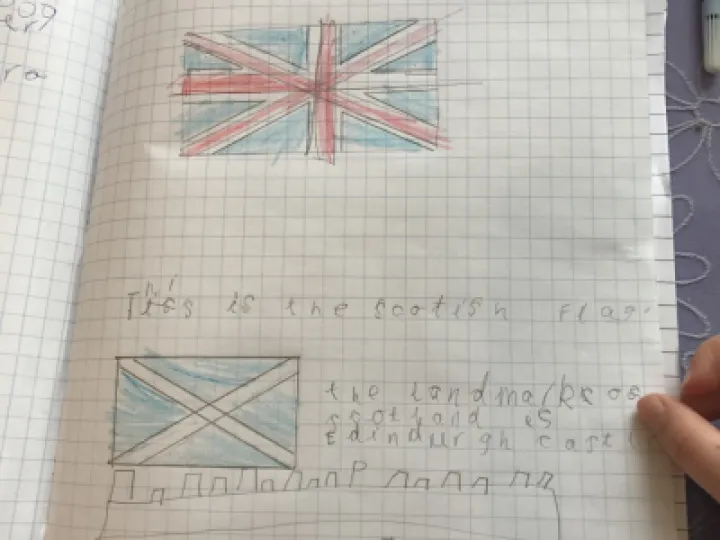 009
er
ra
This is the scotish flag.
the landmarks os
scotland is
Edindurgh cast